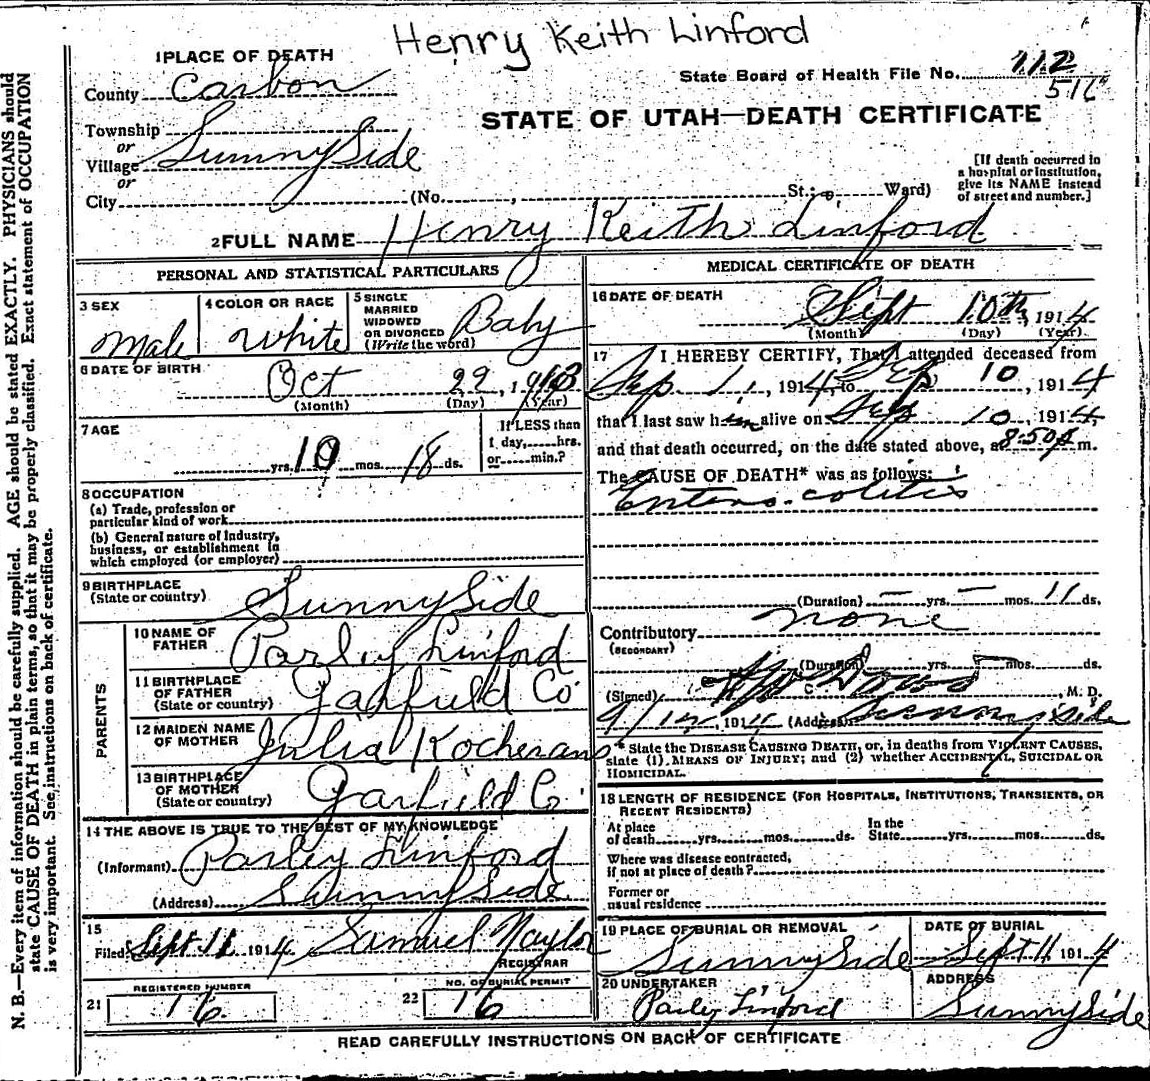 Henry Keith Linford
1 PLACE OF DEATH
County Carbon
State Board of Health File No. 112
516
STATE OF UTAH—DEATH CERTIFICATE
Township
or
Village SunnySide
or
City (No. , St.; Ward)
[If death occurred in
a hospital or institution,
give its NAME instead
of street and number.]
2 FULL NAME Henry Keith Linford
PERSONAL AND STATISTICAL PARTICULARS
3 SEX
Male
4 COLOR OR RACE
White
5 SINGLE
MARRIED
WIDOWED
OR DIVORCED
(Write the word)
Baby
6 DATE OF BIRTH
Oct 29, 1913
(Month) (Day) (Year)
7 AGE
yrs. 10 mos. 18 ds.
If LESS than
1 day, hrs.
or min.?
8 OCCUPATION
(a) Trade, profession or
particular kind of work
(b) General nature of Industry,
business, or establishment in
which employed (or employer)
9 BIRTHPLACE
(State or country)
SunnySide
PARENTS
10 NAME OF
FATHER
Parley Linford
11 BIRTHPLACE
OF FATHER
(State or country)
Garfield Co
12 MAIDEN NAME
OF MOTHER
Julia Kocherans
13 BIRTHPLACE
OF MOTHER
(State or country)
Garfield Co.
14 THE ABOVE IS TRUE TO THE BEST OF MY KNOWLEDGE
(Informant) Parley Linford
(Address) SunnySide
15
Filed Sept 11 1914 Samuel Naylor
REGISTRAR
21 REGISTERED NUMBER
16
22 NO. OF BURIAL PERMIT
16
MEDICAL CERTIFICATE OF DEATH
16 DATE OF DEATH
Sept 10th, 1914
(Month) (Day) (Year)
17 I HEREBY CERTIFY, That I attended deceased from
Sep 1, 1914, to Sep 10, 1914
that I last saw him alive on Sep 10, 1914,
and that death occurred, on the date stated above, at 8:50 m.
The CAUSE OF DEATH* was as follows:
Entero colitis
(Duration) — yrs. — mos. 11 ds.
Contributory none
(SECONDARY)
(Duration) yrs. mos. ds.
(Signed) , M. D.
9/ , 191 (Address) Sunnyside
* State the DISEASE CAUSING DEATH, or, in deaths from VIOLENT CAUSES,
state (1) MEANS OF INJURY; and (2) whether ACCIDENTAL, SUICIDAL OR
HOMICIDAL.
18 LENGTH OF RESIDENCE (FOR HOSPITALS, INSTITUTIONS, TRANSIENTS, OR
RECENT RESIDENTS)
At place
of death yrs. mos. ds.
In the
State yrs. mos. ds.
Where was disease contracted,
if not at place of death?
Former or
usual residence
19 PLACE OF BURIAL OR REMOVAL
SunnySide
DATE OF BURIAL
Sept 11 1914
20 UNDERTAKER
Parley Linford
ADDRESS
SunnySide
READ CAREFULLY INSTRUCTIONS ON BACK OF CERTIFICATE
N. B.—Every item of information should be carefully supplied. AGE should be stated EXACTLY. PHYSICIANS should
state CAUSE OF DEATH in plain terms, so that it may be properly classified. Exact statement of OCCUPATION
is very important. See instructions on back of certificate.